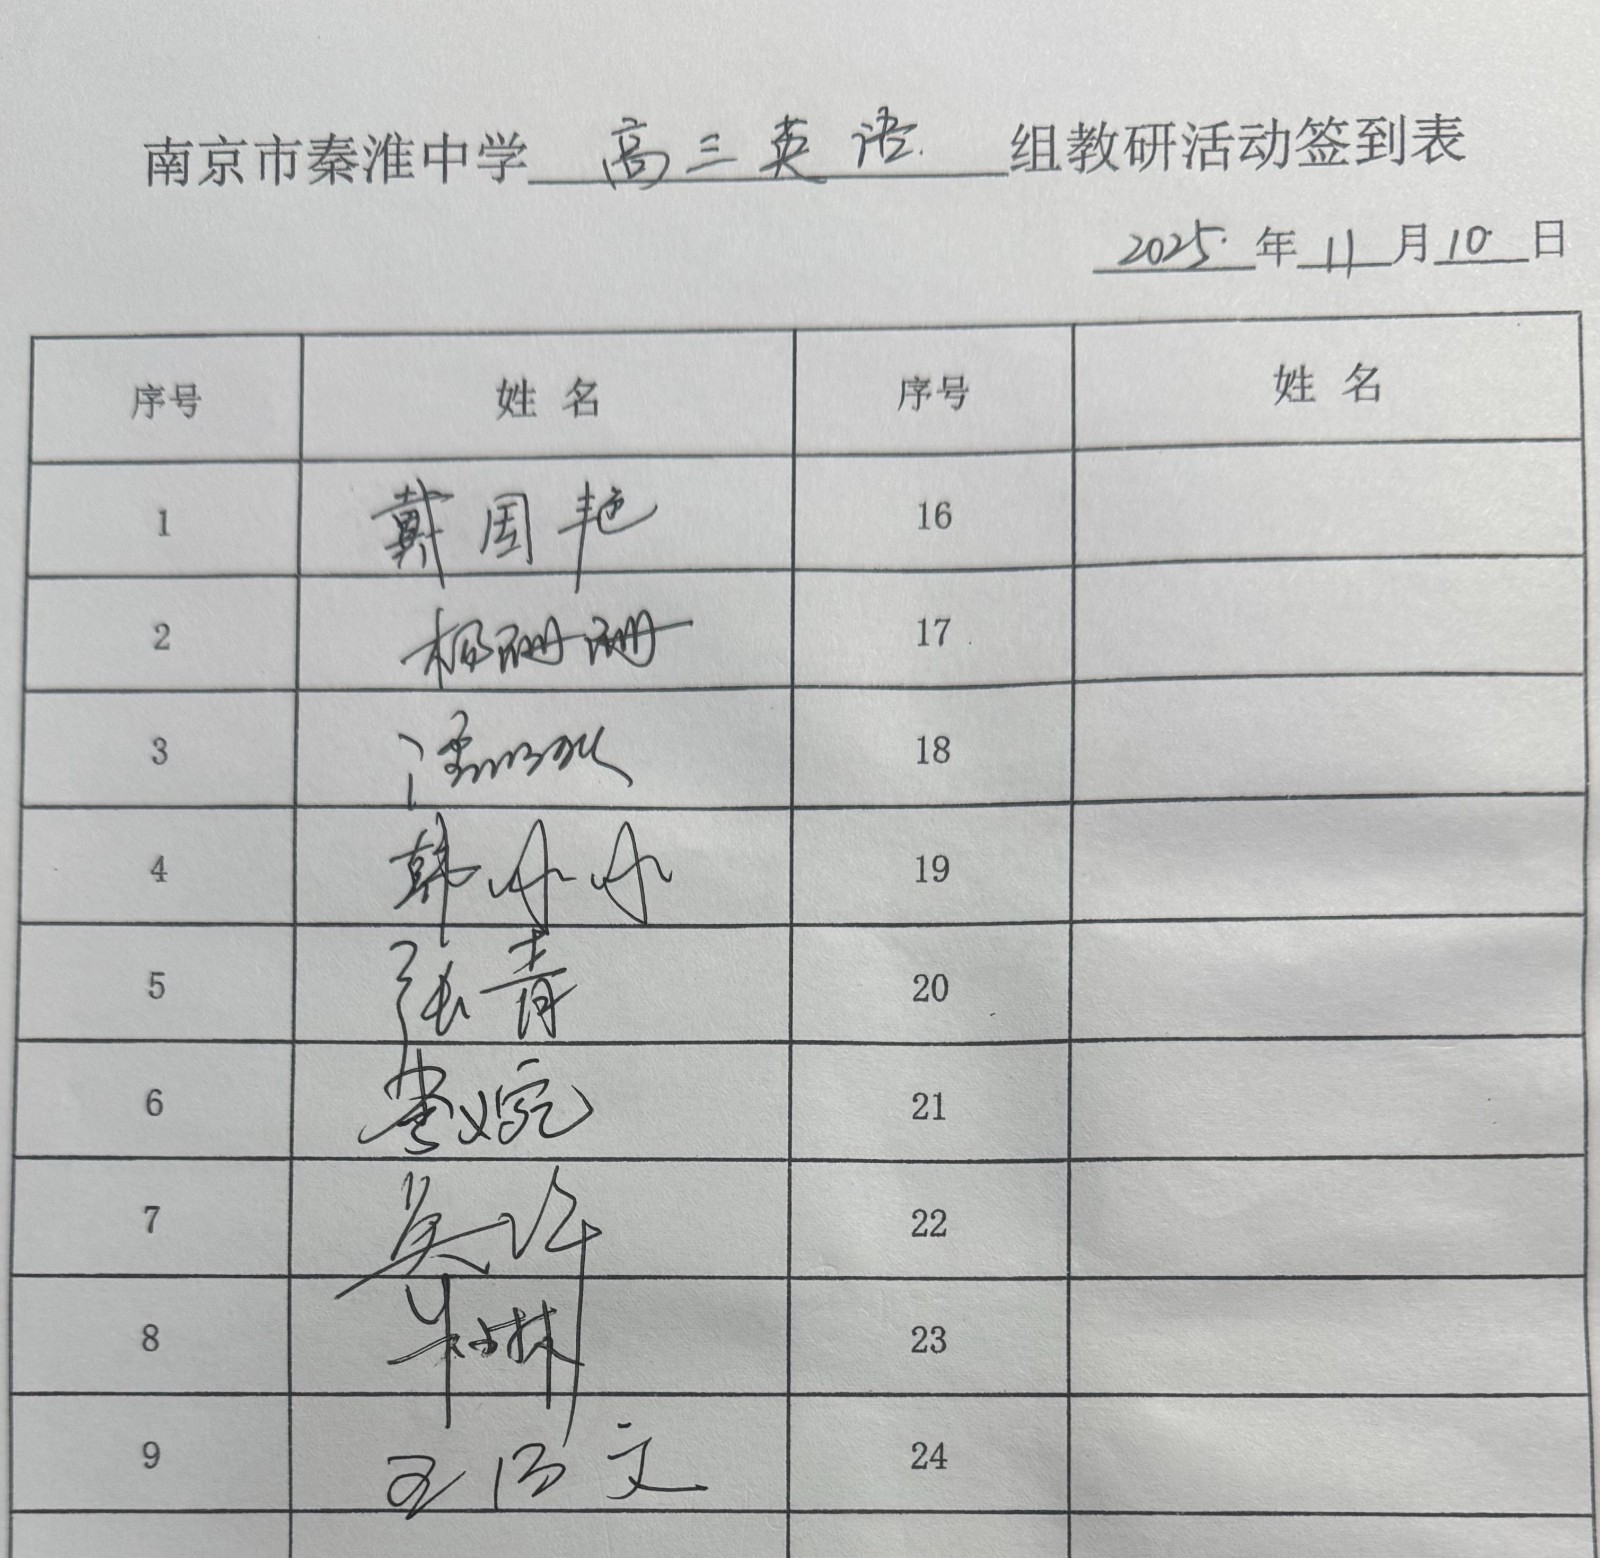 南京市秦淮中学 高三英语 组教研活动签到表
2025 年 11 月 10 日
序号 姓名 序号 姓名
1 戴周艳 16
2 杨珊珊 17
3 18
4 韩 19
5 张青 20
6 黄婉 21
7 吴 22
8 朱琳 23
9 王 文 24